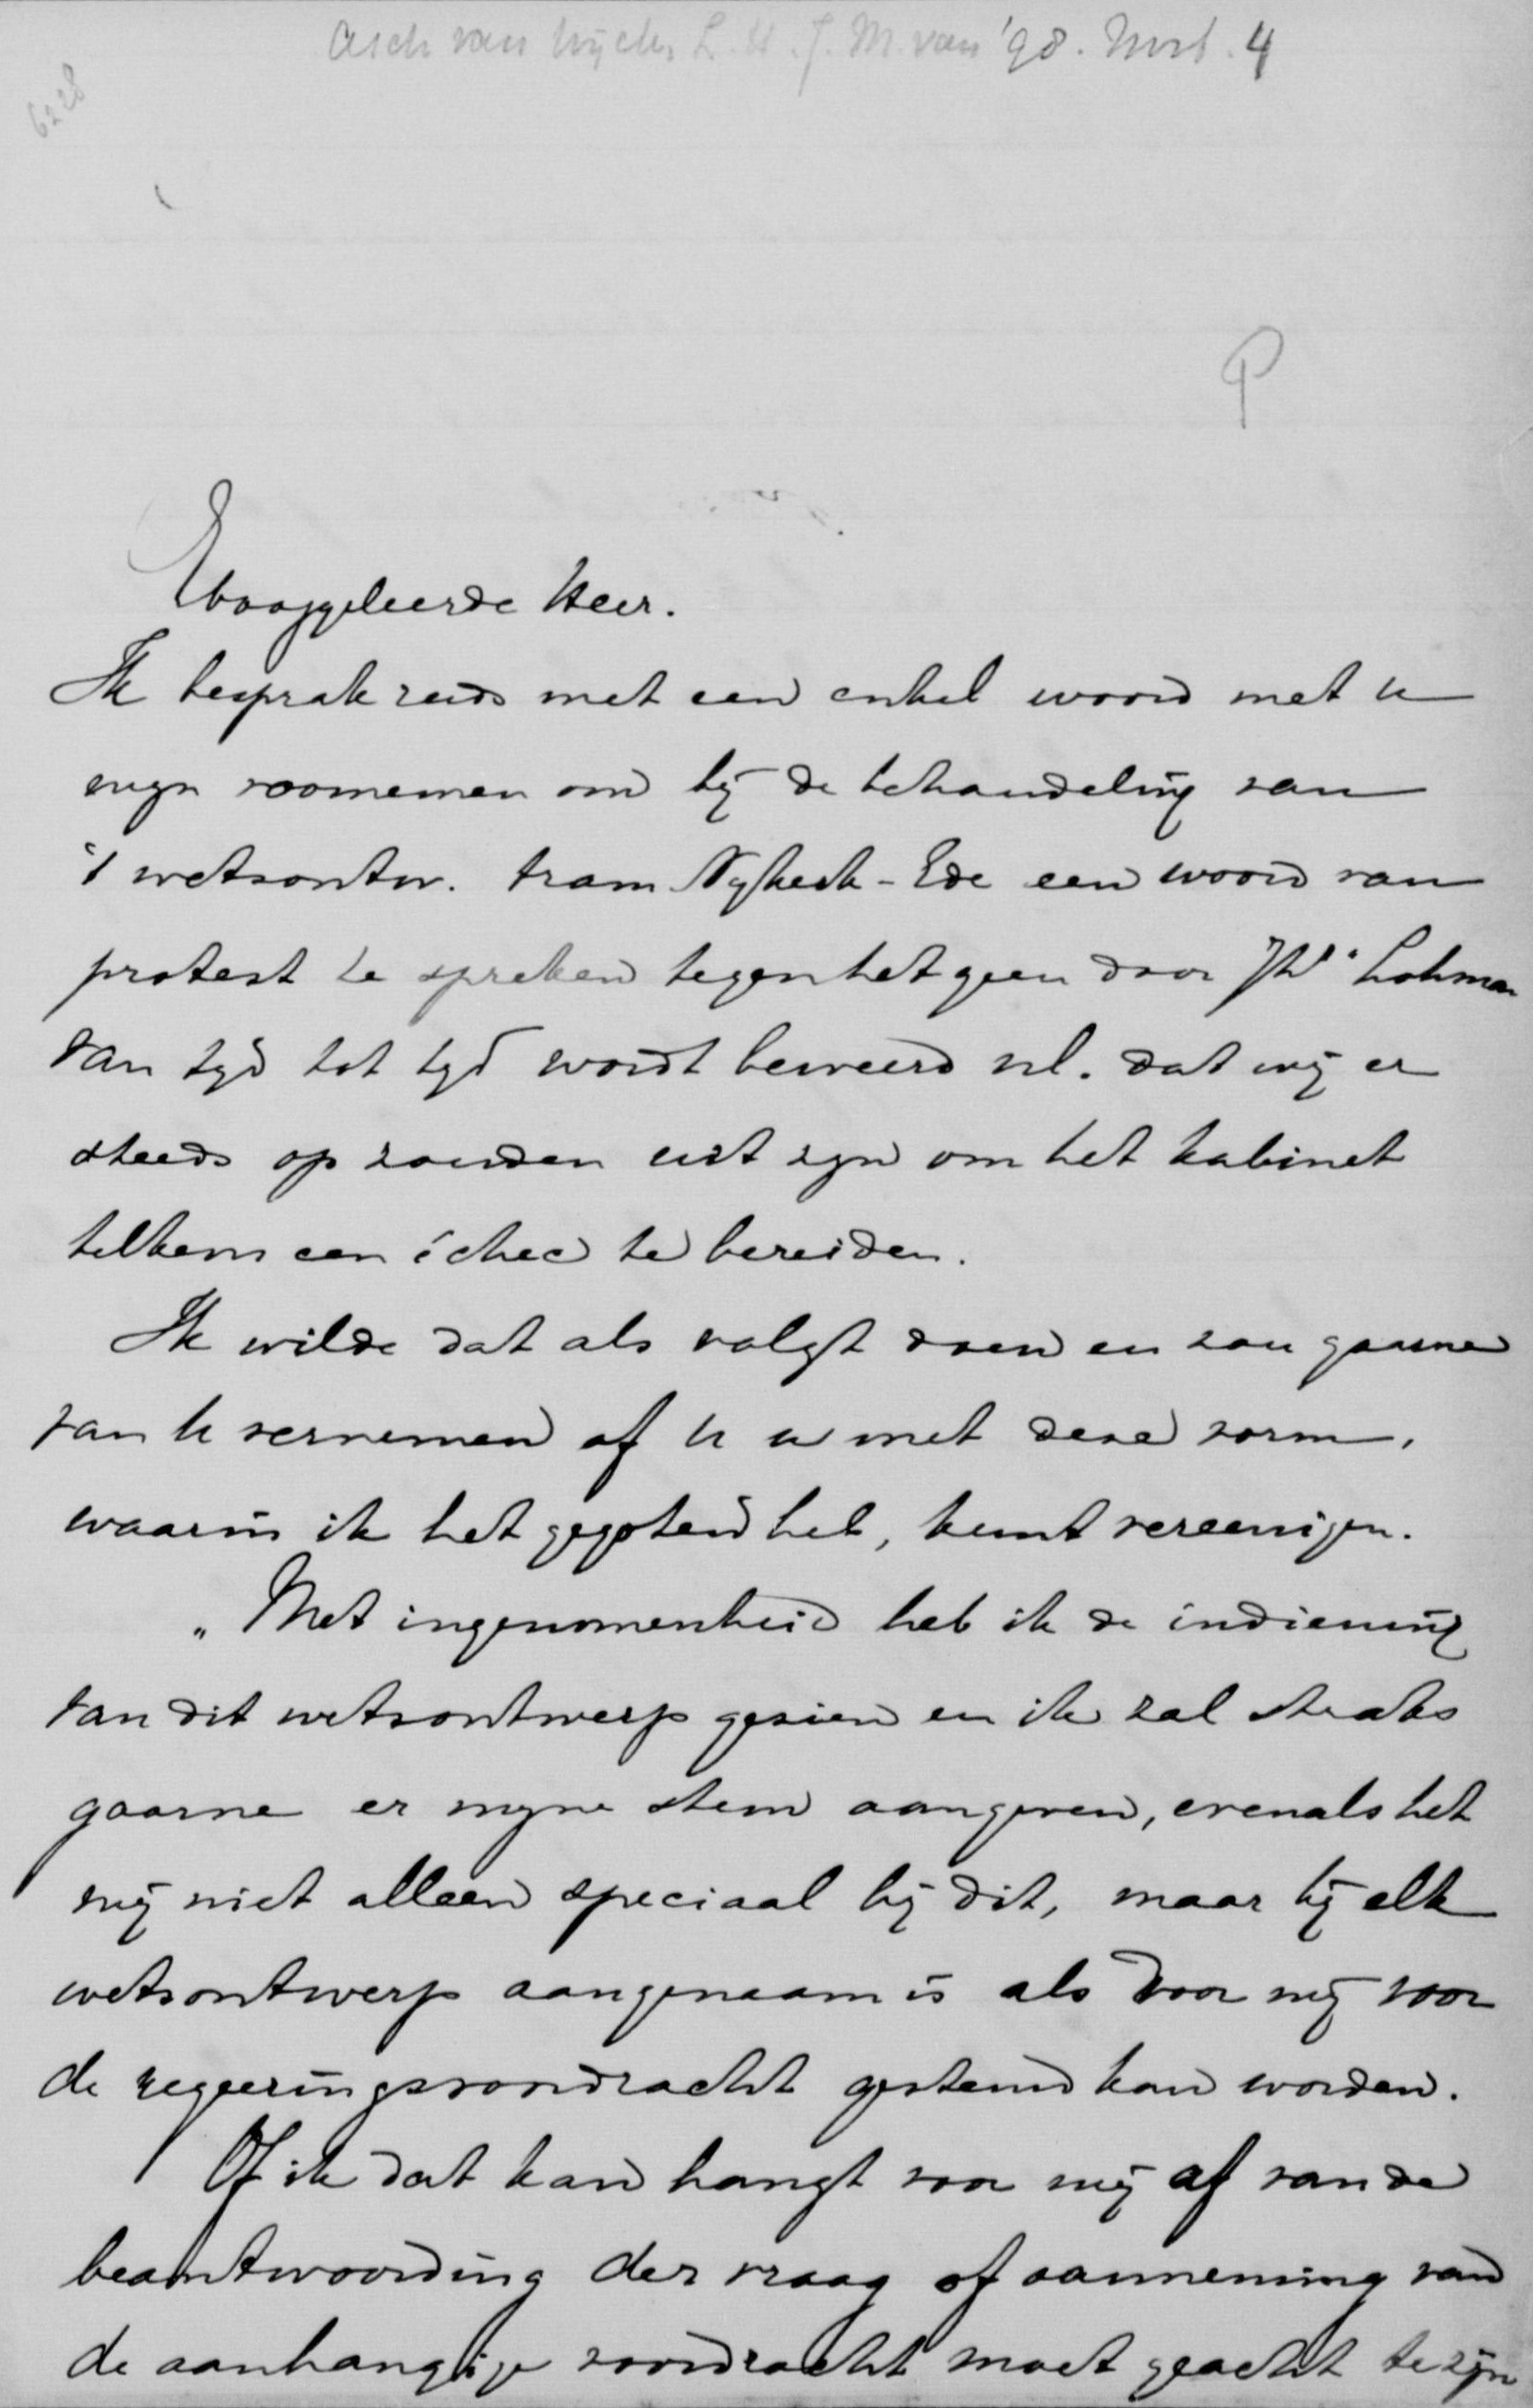 Asch van Wijck, L. H. J. M. van '98. Nov. 4
6228
P
Ehooggeleerde Heer.
Ik besprak reeds met een enkel woord met u
mijn voornemen om bij de behandeling van
't wetsontw. tram Nijkerk-Ede een woord van
protest te spreken tegen hetgeen door Jhr Lohman
van tijd tot tijd wordt beweerd nl. dat wij er
steeds op zouden uit zijn om het kabinet
telkens een échec te bereiden.
Ik wilde dat als volgt doen en zou gaarne
van u vernemen of u u met deze vorm,
waarin ik het gegoten heb, kunt vereenigen.
"Met ingenomenheid heb ik de indiening
van dit wetsontwerp gezien en ik zal straks
gaarne er mijne stem aangeven, evenals het
mij niet alleen speciaal bij dit, maar bij elk
wetsontwerp aangenaam is als door mij voor
de regeeringsvoordracht gestemd kan worden.
Of ik dat kan hangt voor mij af van de
beantwoording der vraag of aanneming van
de aanhangige voordracht moet geacht te zijn